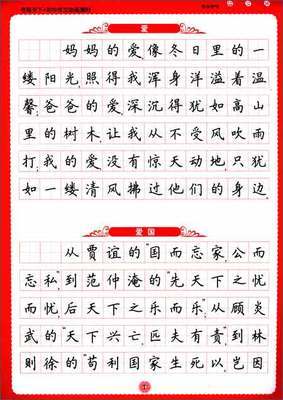 爱
妈妈的爱像冬日里的一
缕阳光,照得我浑身洋溢着温
馨,爸爸的爱,深沉得犹如高山
里的树木,让我从不受风吹雨
打,我的爱没有惊天动地,只犹
如一缕清风拂过他们的身边,
爱国
从贾谊的“国而忘家,公而
忘私”,到范仲淹的“先天下之忧
而忧,后天下之乐而乐”,从顾炎
武的“天下兴亡,匹夫有责”到林
则徐的“苟利国家生死以,岂因